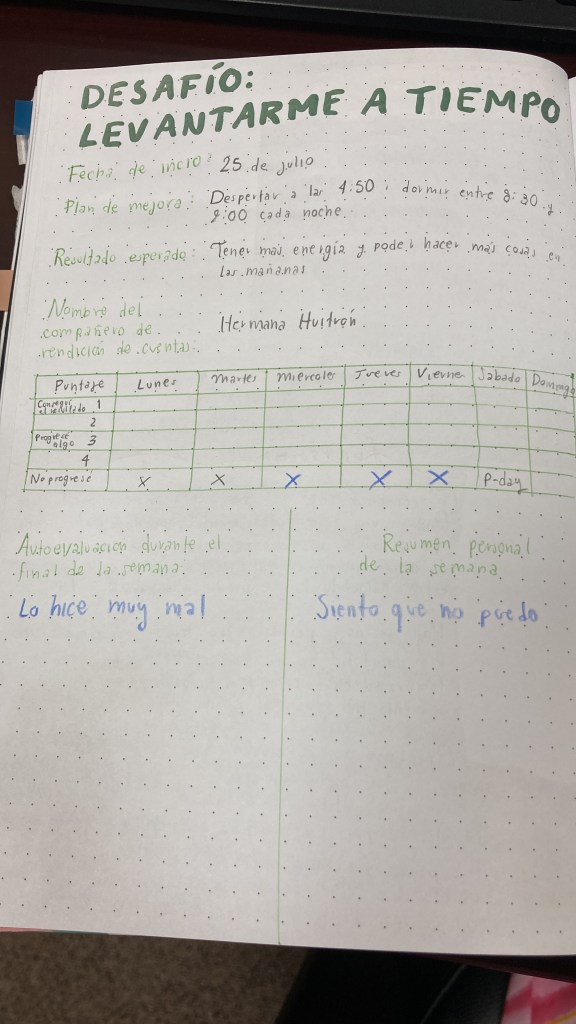 DESAFÍO:
LEVANTARME A TIEMPO
Fecha de inicro: 25 de julio
Plan de mejora: Despertar a las 4:50 i dormir entre 8:30 y
9:00 cada noche.
Resultado esperado: Tener mas energía y poder hacer más cosas en
las mañanas
Nombre del
compañero de
rendición de cuentas: Hermana Huitrón
Puntaje Lunes Martes Miercoles Jueves Vierne Sabado Domingo
Conseguí
el resultado 1
2
Progresé
algo 3
4
No progresé X X X X X P-day
Autoevaluación durante el
final de la semana.
Resumen personal
de la semana
Lo hice muy mal
Siento que no puedo